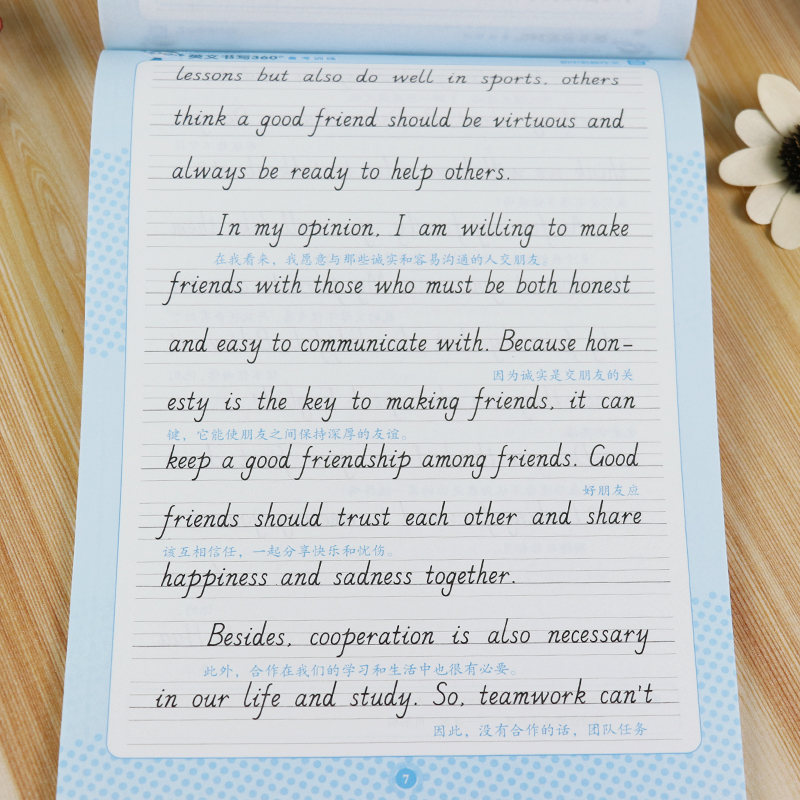 英文书写360°
lessons but also do well in sports, others
think a good friend should be virtuous and
always be ready to help others.
In my opinion, I am willing to make
在我看来，我愿意与那些诚实和容易沟通的人交朋友
friends with those who must be both honest
and easy to communicate with. Because hon-
因为诚实是交朋友的关
esty is the key to making friends, it can
键，它能使朋友之间保持深厚的友谊。
keep a good friendship among friends. Good
好朋友应
friends should trust each other and share
该互相信任，一起分享快乐和忧伤。
happiness and sadness together.
Besides, cooperation is also necessary
此外，合作在我们的学习和生活中也很有必要。
in our life and study. So, teamwork can't
因此，没有合作的话，团队任务
7